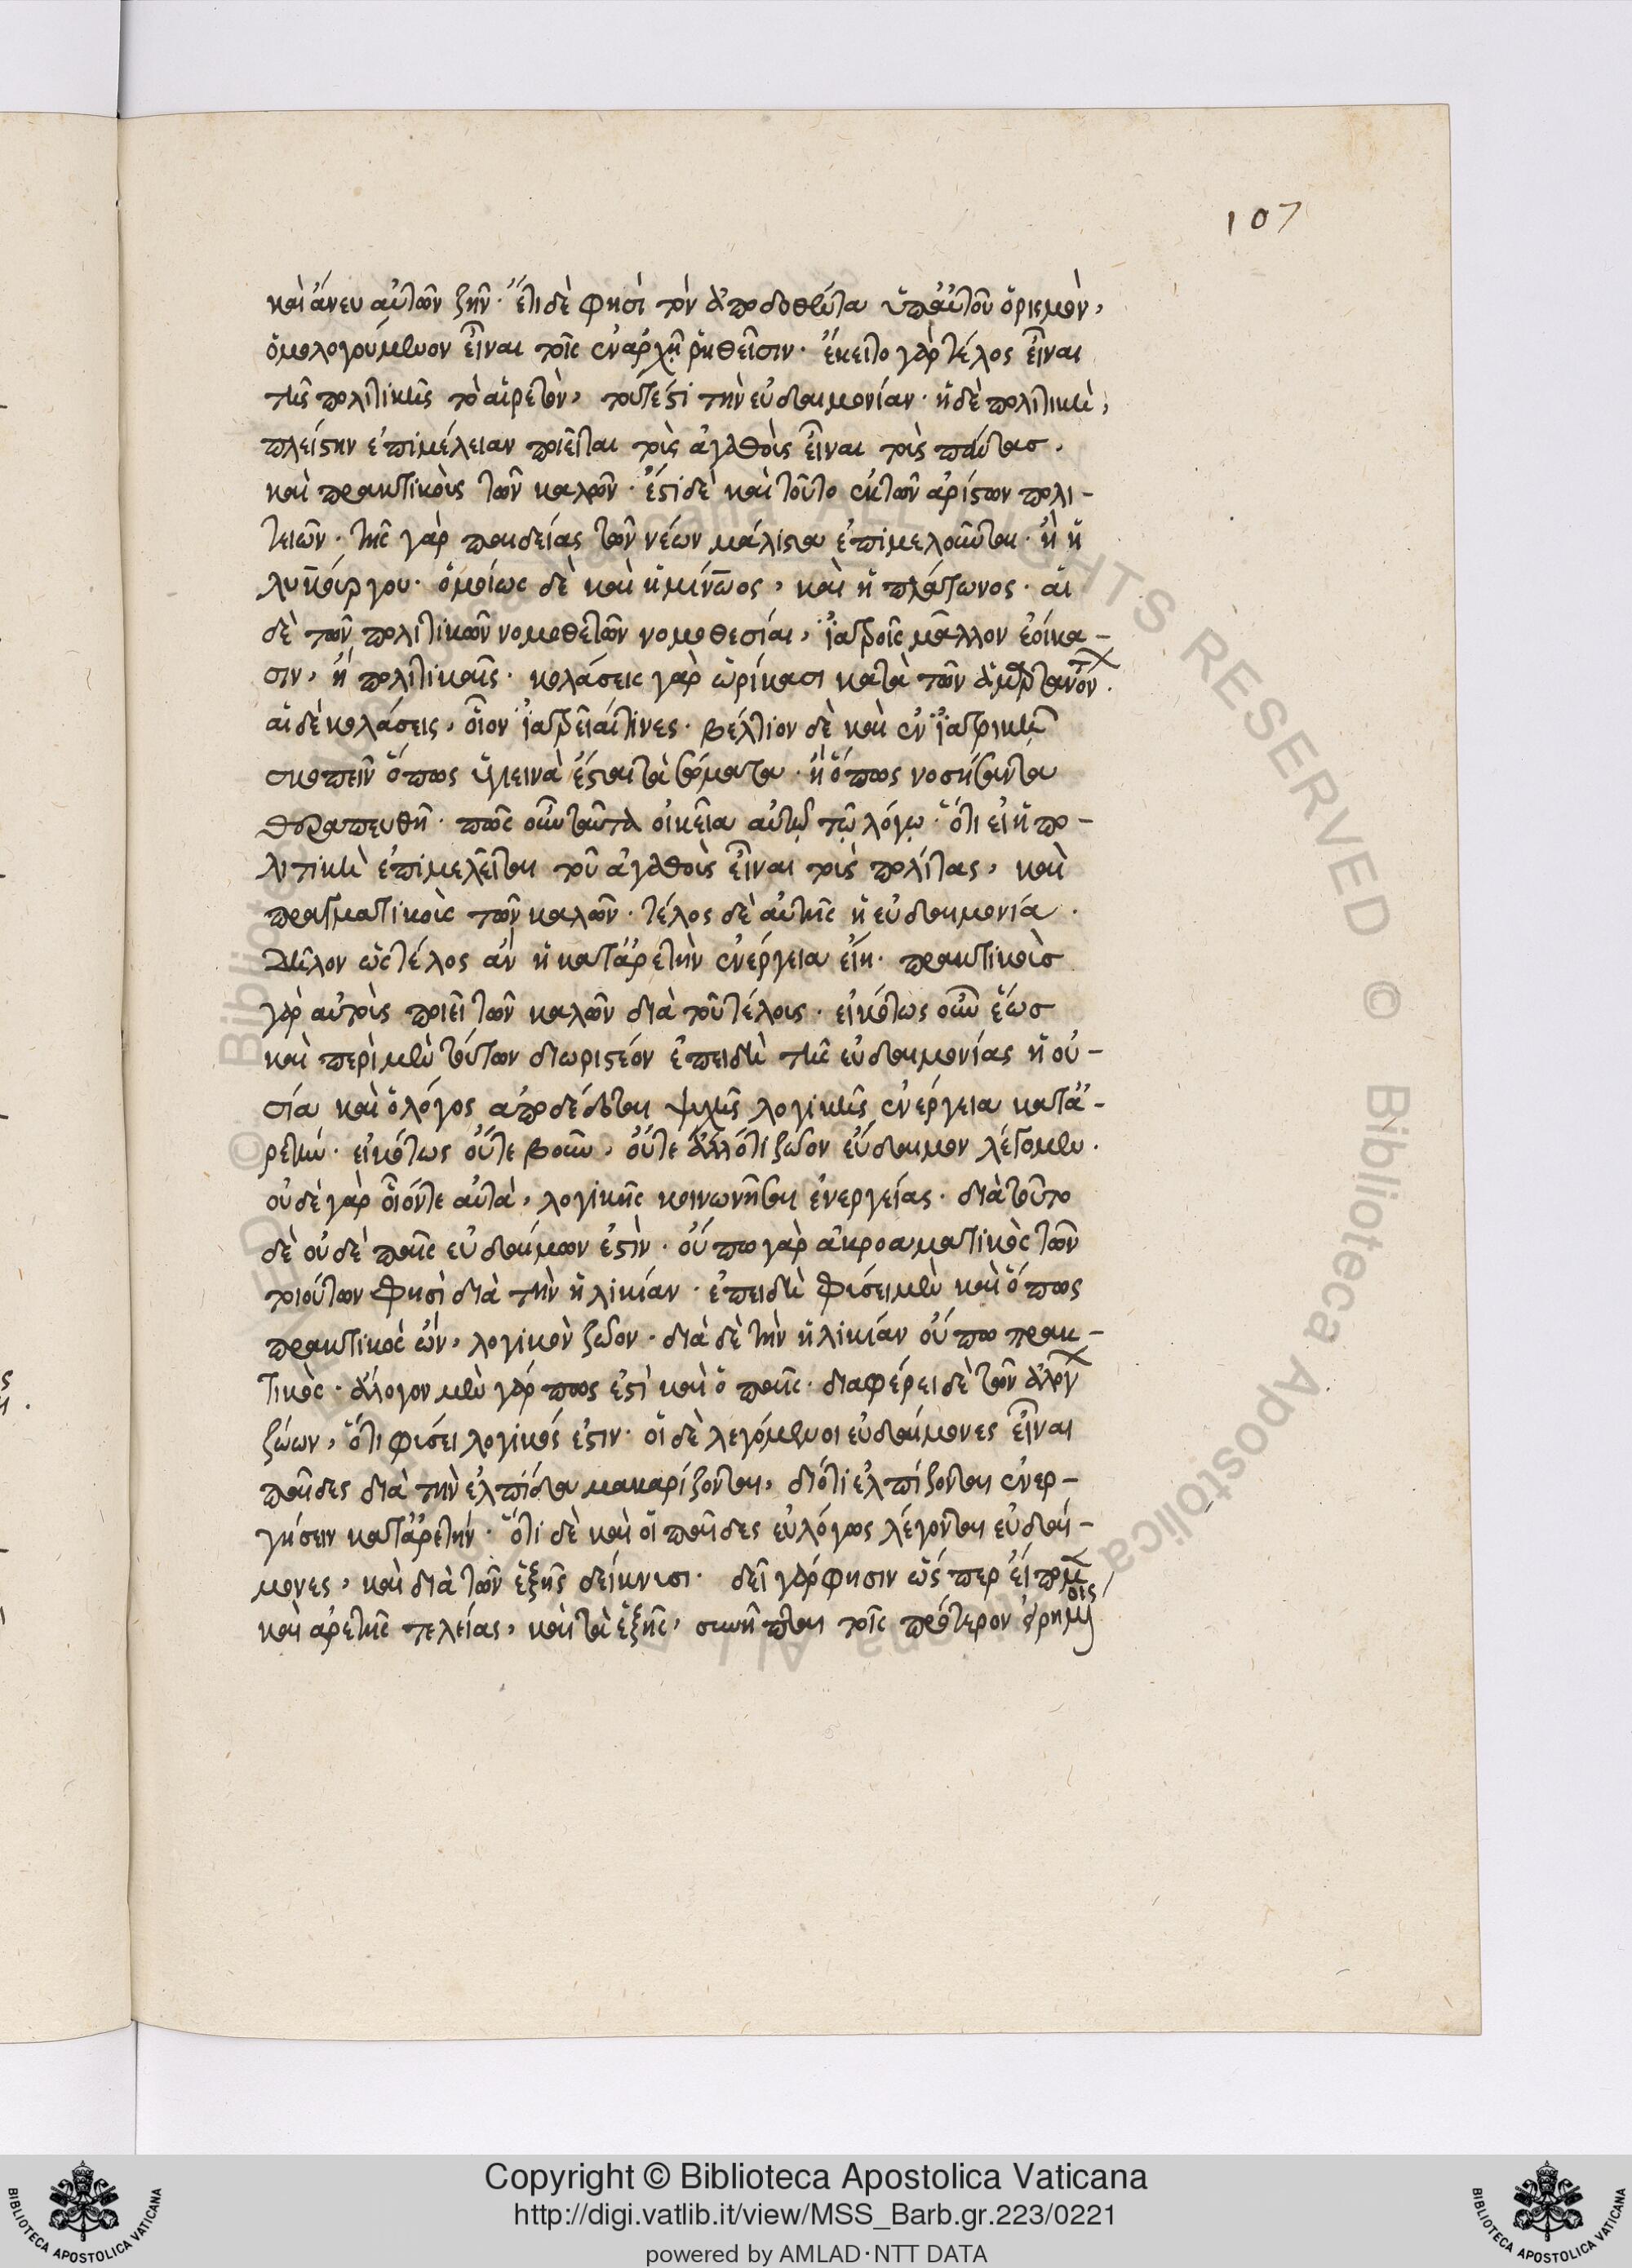 107
καὶ ἄνευ αὐτῶν ζῆν. ἔτι δὲ φησὶ τὸν ἀποδοθέντα ὑπ' αὐτοῦ ὁρισμὸν,
ὁμολογούμενον εἶναι τοῖς ἐν ἀρχῇ ῥηθεῖσιν. ἔκειτο γὰρ τέλος εἶναι
τῆς πολιτικῆς τὸ αἱρετὸν, τουτέστι τὴν εὐδαιμονίαν. ἡ δὲ πολιτικὴ,
πλείστην ἐπιμέλειαν ποιεῖται τοὺς ἀγαθοὺς εἶναι τοὺς πάντας.
καὶ πρακτικοὺς τῶν καλῶν. ἔστι δὲ καὶ τοῦτο ἐκ τῶν ἀρίστων πολι-
τειῶν. τῆς γὰρ παιδείας τῶν νέων μάλιστα ἐπιμελοῦνται. ἢ ἡ
λυκούργου. ὁμοίως δὲ καὶ ἡ μίνωος, καὶ ἡ πλάτωνος. αἱ
δὲ τῶν πολιτικῶν νομοθετῶν νομοθεσίαι, ἰατροῖς μᾶλλον ἐοίκα-
σιν, ἢ πολιτικαῖς. κολάσεις γὰρ ὡρίκασι κατὰ τῶν ἁμαρτανόντων.
αἱ δὲ κολάσεις, οἷον ἰατρεῖαί τινες. βέλτιον δὲ καὶ ἐν ἰατρικῇ
σκοπεῖν ὅπως ὑγιεινὰ ἔσται τὰ σώματα. ἢ ὅπως νοσήσαντα
θεραπευθῇ. πῶς οὖν ταῦτα οἰκεῖα αὐτῷ τῷ λόγῳ. ὅτι εἰ ἡ πο-
λιτικὴ ἐπιμελεῖται τοῦ ἀγαθοὺς εἶναι τοὺς πολίτας, καὶ
πραγματικοὺς τῶν καλῶν. τέλος δὲ αὐτῆς ἡ εὐδαιμονία.
Δῆλον ὡς τέλος ἂν ἡ κατ' ἀρετὴν ἐνέργεια εἴη. πρακτικοὺς
γὰρ αὐτοὺς ποιεῖ τῶν καλῶν διὰ τοῦ τέλους. εἰκότως οὖν ἕως
καὶ περὶ μὲν τούτων διωριστέον ἐπειδὴ τῆς εὐδαιμονίας ἡ οὐ-
σία καὶ ὁ λόγος ἀποδέδοται ψυχῆς λογικῆς ἐνέργεια κατ' ἀ-
ρετήν. εἰκότως οὔτε βοῦν, οὔτε ἄλλό τι ζῶον εὔδαιμον λέγομεν.
οὐδὲ γὰρ οἷόν τε αὐτὰ, λογικῆς κοινωνῆσαι ἐνεργείας. διὰ τοῦτο
δὲ οὐδὲ παῖς εὐδαίμων ἐστὶν. οὔπω γὰρ ἀκροαματικὸς τῶν
τοιούτων φησὶ διὰ τὴν ἡλικίαν. ἐπειδὴ φύσει μὲν καὶ ὅπως
πρακτικὸς ὢν, λογικὸν ζῶον. διὰ δὲ τὴν ἡλικίαν οὔπω πρακ-
τικὸς. ἄλογον μὲν γάρ πως ἐστὶ καὶ ὁ παῖς. διαφέρει δὲ τῶν ἀλόγων
ζώων, ὅτι φύσει λογικός ἐστιν. οἱ δὲ λεγόμενοι εὐδαίμονες εἶναι
παῖδες διὰ τὴν ἐλπίδα μακαρίζονται, διότι ἐλπίζονται ἐνερ-
γήσειν κατ' ἀρετήν. ὅτι δὲ καὶ οἱ παῖδες εὐλόγως λέγονται εὐδαί-
μονες, καὶ διὰ τῶν ἑξῆς δείκνυσι. δεῖ γάρ φησιν ὥσπερ εἴπομεν
καὶ ἀρετῆς τελείας, καὶ τὰ ἑξῆς, συνῆπται τοῖς πρότερον εἰρημένοις
Copyright © Biblioteca Apostolica Vaticana
http://digi.vatlib.it/view/MSS_Barb.gr.223/0221
powered by AMLAD·NTT DATA